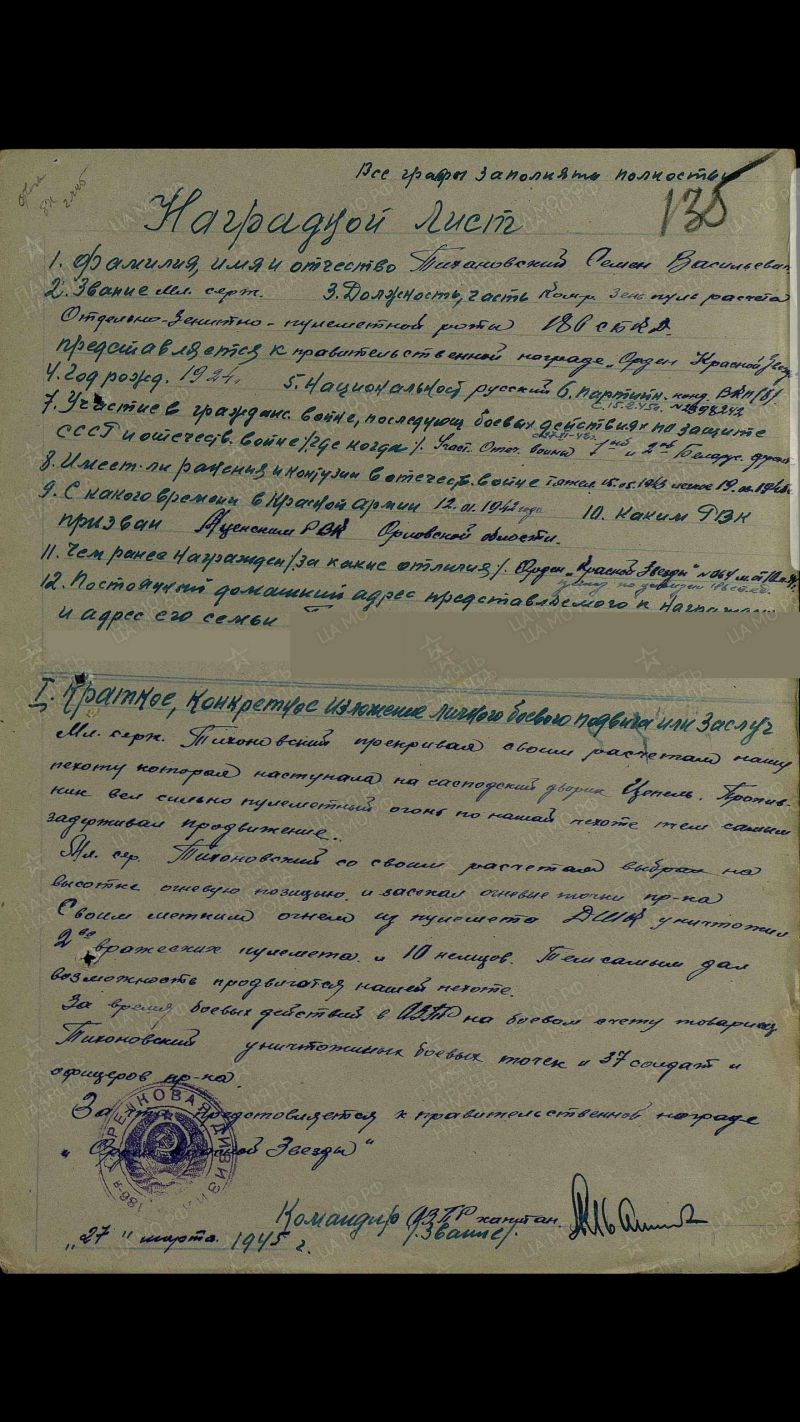 Все графы заполнять полностью
135
Наградной лист
1. Фамилия, имя и отчество Тихановский Семен Васильевич
2. Звание мл. серж. 3. Должность, часть Комр. Зен. пуль расчета
Отдельно-Зенитно-пулеметной роты 186 с.д.
представляется к правительственной награде „Орден Красной
4. Год рожд. 1924 г. 5. Национальност русский 6. партийн. конд. ВКП(б)
7. Участие в гражданс. войне, последующ боевых действиях по защите
СССР и отечеств. войне /где когда/. Участ. Отеч. войны 1ый и 2ой Белорус. фронт
8. Имеет-ли ранения и контузии в отечеств. войне тяжел 15.05.1943 легкое 1945
9. С какого времени в Красной армии 12.01.1942 года 10. Каким РВК
призван Мценским РВК Орловской области.
11. Чем ранее награжден /за какие отличия/. Орден „Красной Звезды"
12. Постоянный домашний адрес представляемого к награжден
и адрес его семьи
I. Краткое, конкретное изложение личного боевого подвига или заслуг
Мл. серж. Тихоновский прекривал своим расчетам нашу
пехоту которая наступала на господский дворик Цепель. Против-
ник вел сильно пулеметный огонь по нашей пехоте тем самым
задерживал продвижение.
Мл. сер. Тихоновский со своим расчетам выбрал на
высотке огневую позицыю. и засекал огневые точки пр-ка
Своим метким огнем из пулемета ДШК уничтожил
2ва вражеских пулемета. и 10 немцов. Тем самым дал
возможность продвигатся нашей пехоте.
За время боевых действий в ОЗПР на боевом счету товарищ
Тихоновский уничтожиных боевых точек и 37 солдат и
офицеров пр-ка.
За что предстовляется к правительственной награде
„Орден Красной Звезды"
СТРЕЛКОВАЯ ДИВИЗИЯ
186-я
Командир ОЗПР капитан
/Звание/.
„27" марта 1945 г.